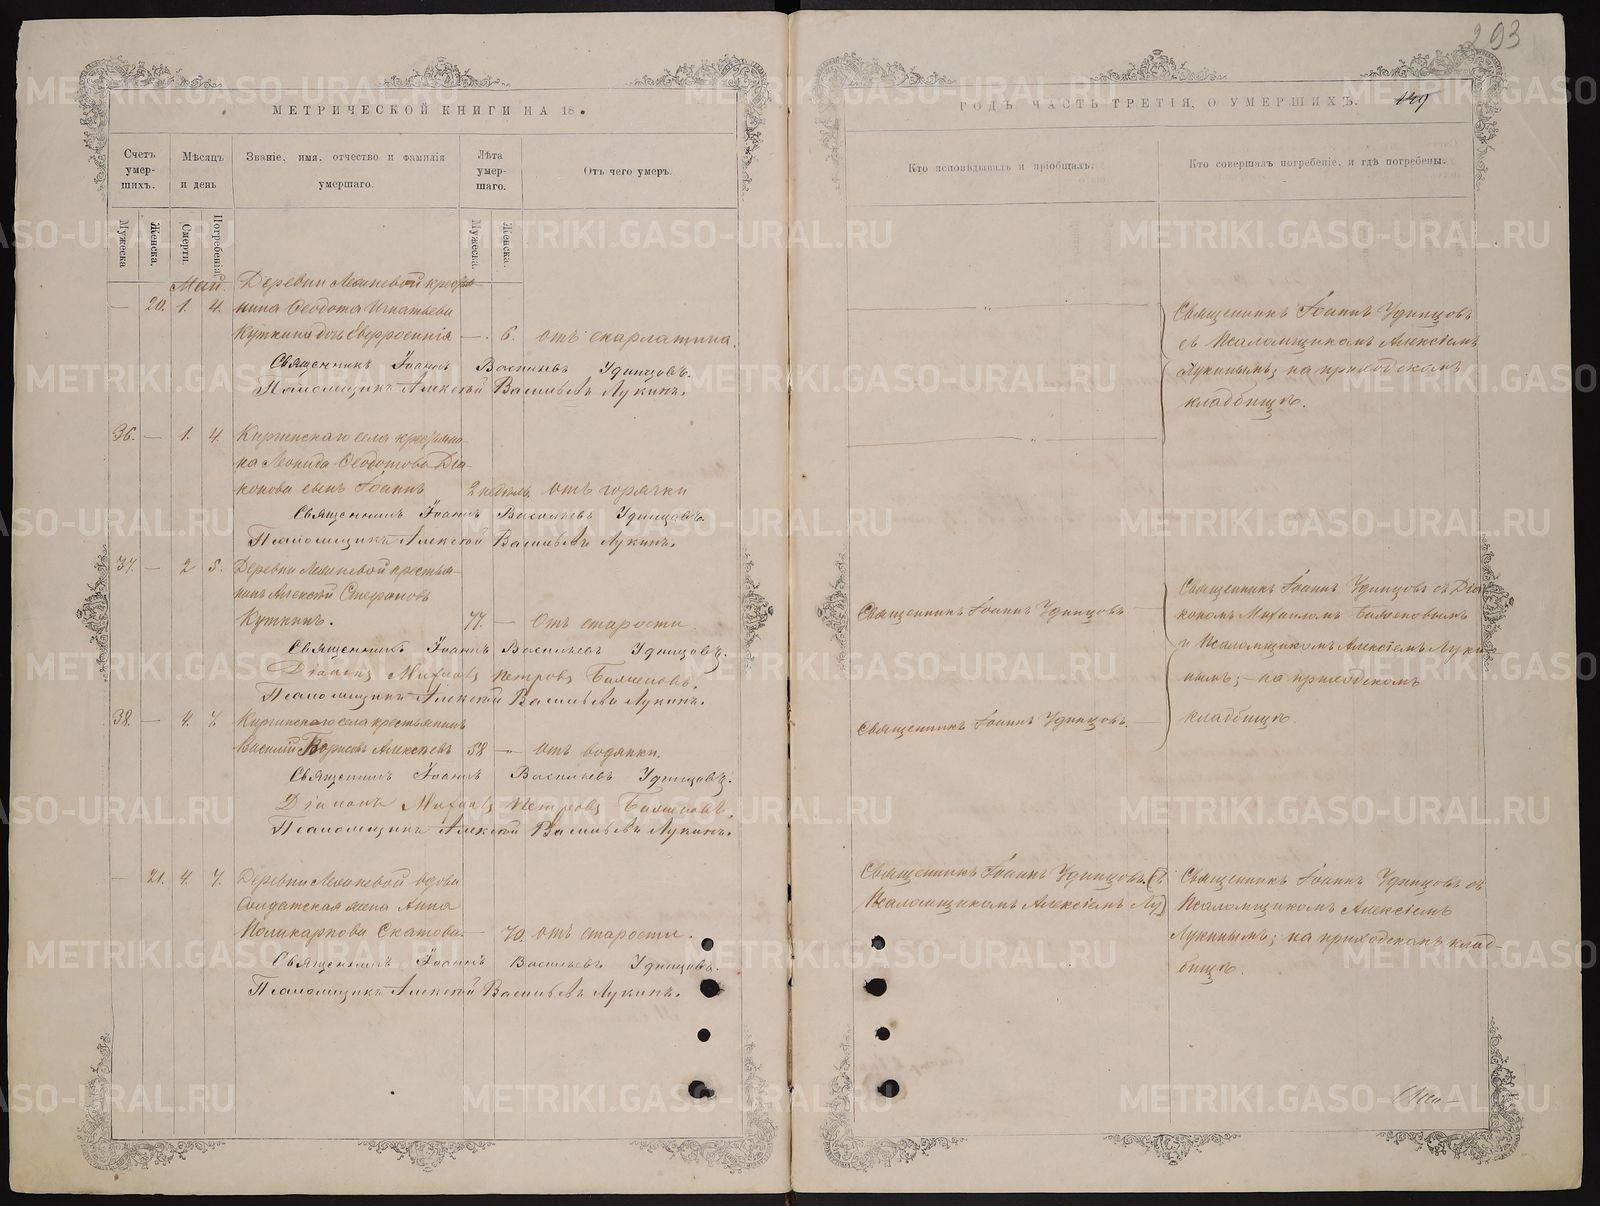 293
МЕТРИЧЕСКОЙ КНИГИ НА 18
Счетъ умер-шихъ.
Мѣсяцъ и день
Званіе, имя, отчество и фамилія умершаго.
Лѣта умер-шаго.
Отъ чего умеръ.
Мужеска
Женска.
Смерти.
Погребенія
Мужеска.
Женска.
Май.
Деревни
— 20. 1. 4. нина Ѳеодота Игнатьева
Куткина дочь Евфросинія — 6. отъ скарлатина.
Священникъ Іоаннъ Васильевъ Удинцовъ.
Псаломщикъ Алексѣй Васильевъ Лукинъ.
36. — 1. 4. Киргинскаго села крестьяни-
на Леонида Ѳеодотова Діа-
конова сынъ Іоаннъ 2 недѣль отъ горячки
Священникъ Іоаннъ Васильевъ Удинцовъ.
Псаломщикъ Алексѣй Васильевъ Лукинъ.
37. — 2 5. Деревни крестья-
нинъ Алексѣй Стефановъ
Куткинъ. 77. — Отъ старости.
Священникъ Іоаннъ Васильевъ Удинцовъ.
Діаконъ Михаилъ Петровъ
Псаломщикъ Алексѣй Васильевъ Лукинъ.
38. — 4. 7. Киргинскаго села крестьянинъ
Василій Алексѣевъ 58 — отъ водянки.
Священникъ Іоаннъ Васильевъ Удинцовъ.
Діаконъ Михаилъ Петровъ
Псаломщикъ Алексѣй Васильевъ Лукинъ.
— 21. 4. 7. Деревни вдова
Солдатская жена Анна
Поликарпова Скатова. — 70. отъ старости.
Священникъ Іоаннъ Васильевъ Удинцовъ.
Псаломщикъ Алексѣй Васильевъ Лукинъ.
ГОДЪ ЧАСТЬ ТРЕТІЯ, О УМЕРШИХЪ. 149
Кто исповѣдывалъ и пріобщалъ.
Кто совершалъ погребеніе, и гдѣ погребены.
Священникъ Іоаннъ Удинцовъ
съ Псаломщикомъ Алексіемъ
Лукинымъ; на приходскомъ
кладбищѣ.
Священникъ Іоаннъ Удинцовъ
Священникъ Іоаннъ Удинцовъ съ Діа-
кономъ Михаиломъ
и Псаломщикомъ Алексіемъ Луки-
нымъ; — на приходскомъ
кладбищѣ.
Священникъ Іоаннъ Удинцовъ.
Священникъ Іоаннъ Удинцовъ съ
Псаломщикомъ Алексіемъ
Священникъ Іоаннъ Удинцовъ съ
Псаломщикомъ Алексіемъ
Лукинымъ; на приходскомъ клад-
бищѣ.
METRIKI.GASO-URAL.RU